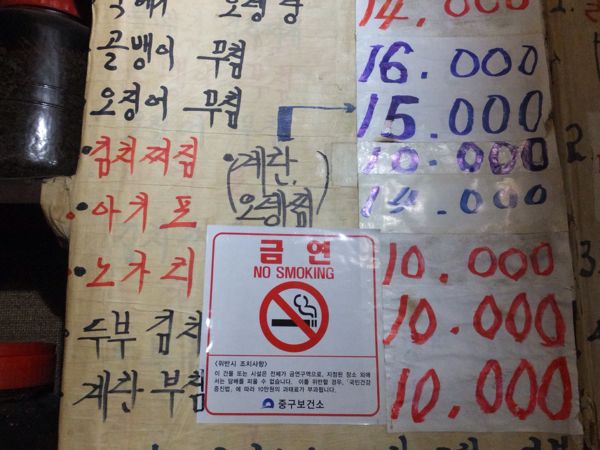 14.000
골뱅이 무침 16.000
오징어 무침 15.000
김치찌짐 (계란, 10.000
오징찜) 14.000
노가리 10.000
두부 김치 10.000
계란 부침 10.000
금연
NO SMOKING
<위반시 조치사항>
이 건물 또는 시설은 전체가 금연구역으로, 지정된 장소 외에
서는 담배를 피울 수 없습니다. 이를 위반할 경우, 「국민건강
증진법」에 따라 10만원의 과태료가 부과됩니다.
중구보건소
2.
3.